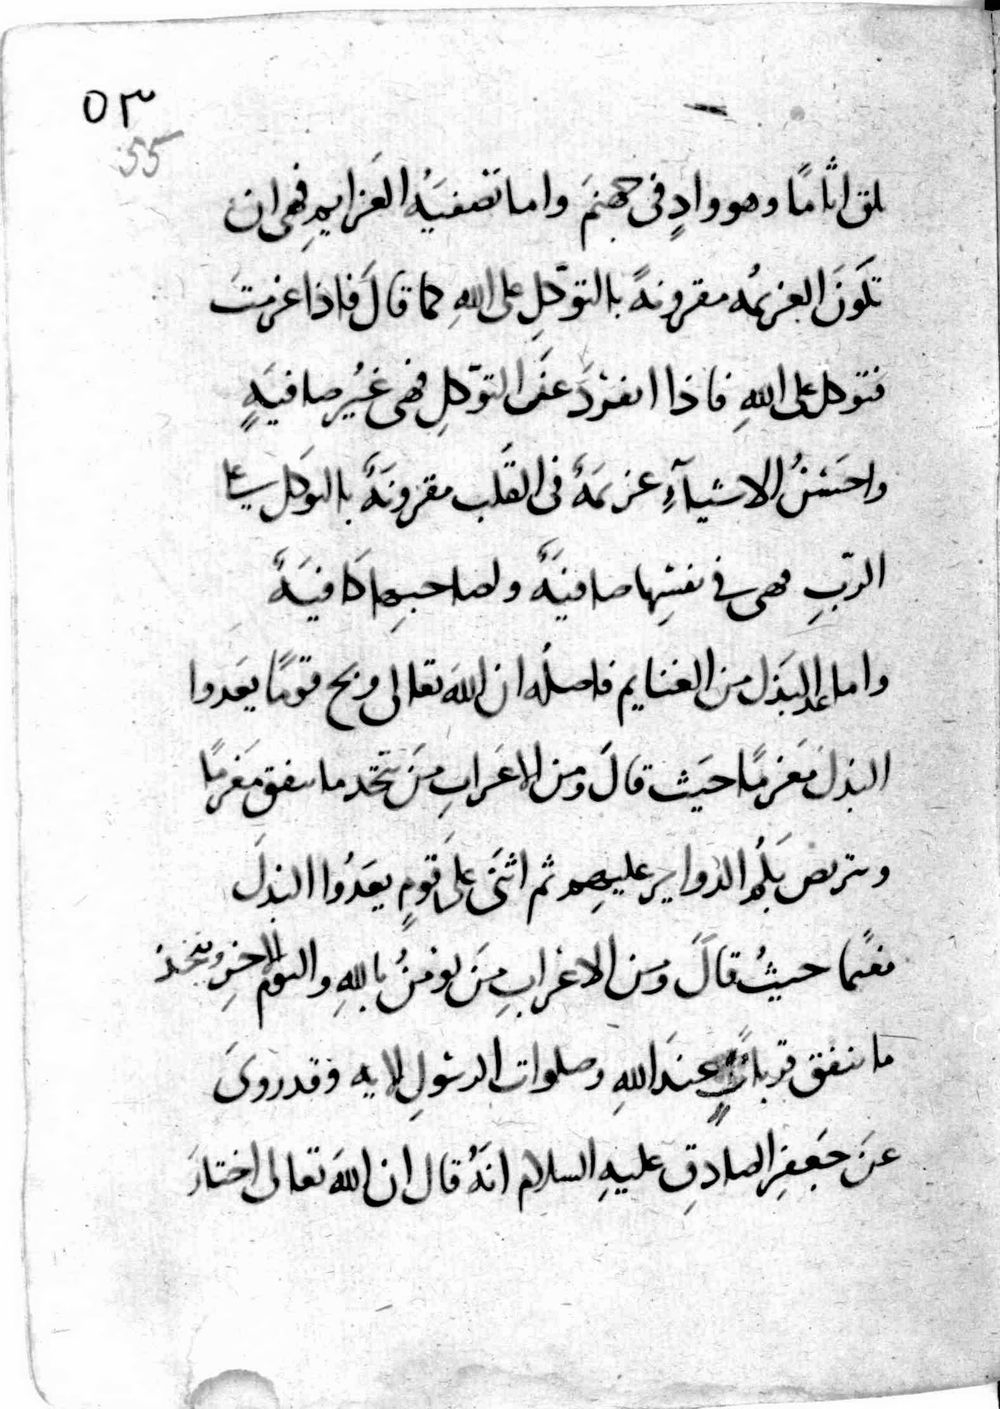 ٥٣
55
يلق اثامًا وهو وادٍ في جهنمَ واما تصفيَهُ العَزايمِ فهى ان
تكونَ العزيمُه مقرونةً بالتوّكلِ على اللهِ كما قالَ فاذا عزمتَ
فتوكل على اللهِ فاذا انفردَ عنَ التوّكلِ فهى غيُر صافيَةٍ
واحَسنُ الاشيآءِ عزيمَةٌ في القَلب مقرونَةٌ بالتوكل على
الرّبِ فهى في نفسِها صافيَةٌ ولصاحبِها كافيَةٌ
واما عد البَذل من الغنايم فاصلُه ان اللهَ تعالى وبخ قومًا يعَدوا
البذلَ مَغرمًا حيَث قالَ ومن الاعَرابِ منَ يتخد ما ينفق مَغرمًا
ويتربص بكُم الدَوايرعليهِم ثم اثنَى علىَ قومٍ يعَدُوا البذلَ
مغنًما حيثُ قالَ ومن الاعَرابِ منَ يومنُ باللهِ واليومِ الاخرِ ويتخذ
ما ينفق قرباتٍ عندَ اللهِ وصلوات الرسُولِ الايه وقد روىَ
عنَ جَعفرِ الصادِق عليهِ السلام انهُ قال ان اللهَ تعالى اختارَ